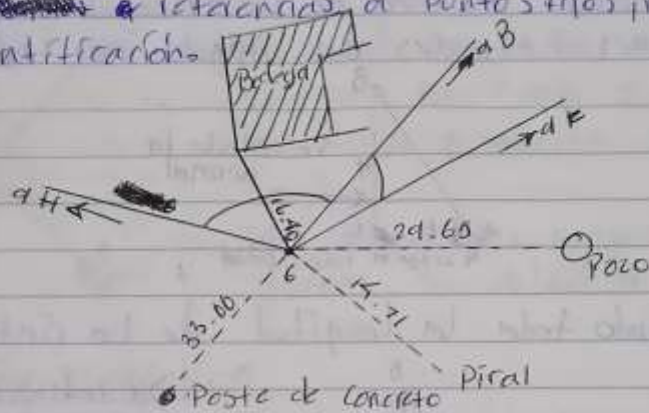 a referencias a Puntos fijos
ntificación.
Bodega
a B
a K
a H
16.40
29.60
Pozo
6
33.00
15.71
Poste de Concreto
Piral